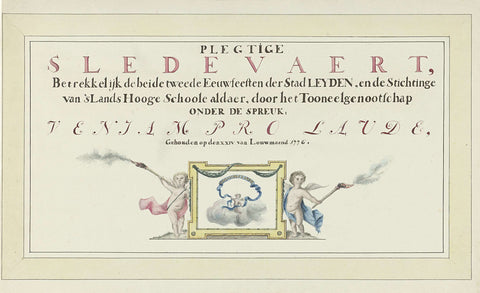 PLEGTIGE
SLEDEVAERT,
Betrekkelijk de beide tweede Eeuwfeesten der Stad LEYDEN, en de Stichtinge
van 's Lands Hooge Schoole aldaer, door het Tooneelgenootschap
ONDER DE SPREUK,
VENIAM PRO LAUDE,
Gehouden op den XXIV van Louwmaend 1776.